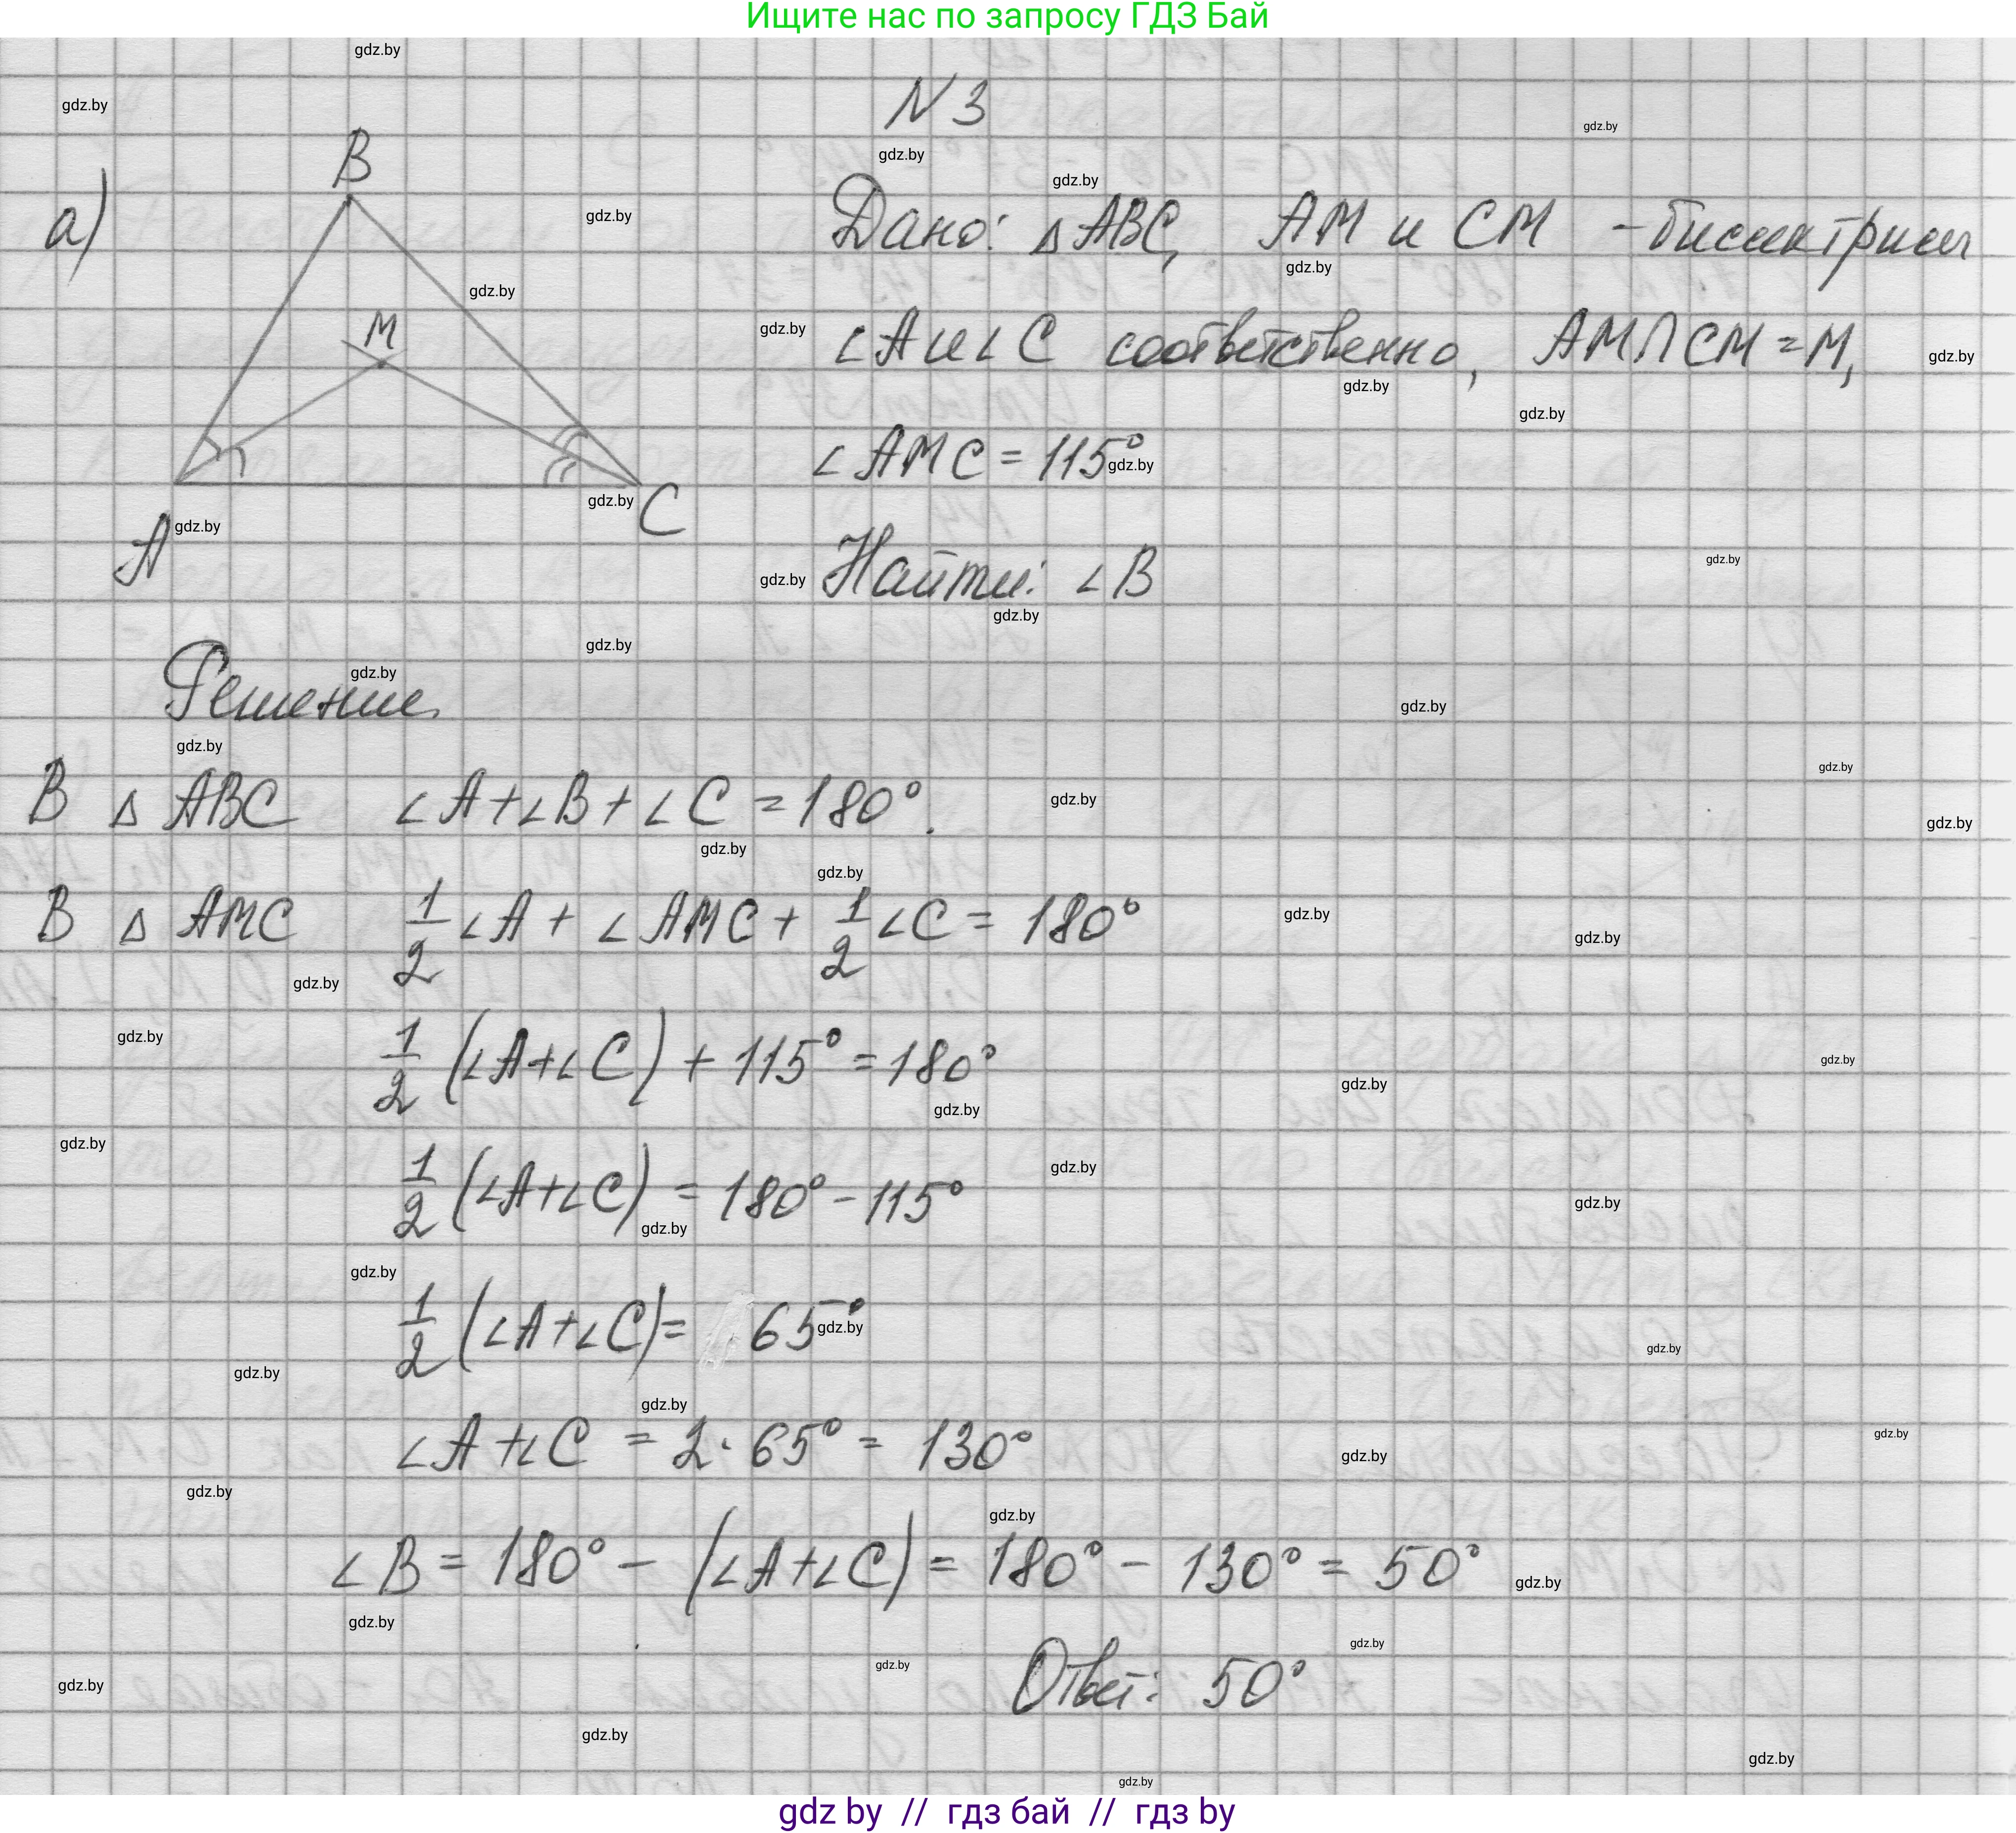 Ищите нас по запросу ГДЗ Бай
N 3
а)
B
M
A
C
Дано: △ABC, AM и CM - биссектрисы
∠A и ∠C соответственно, AM∩CM = M,
∠AMC = 115°
Найти: ∠B
Решение.
В △ABC ∠A+∠B+∠C = 180°.
В △AMC 1/2 ∠A + ∠AMC + 1/2 ∠C = 180°
1/2 (∠A+∠C) + 115° = 180°
1/2 (∠A+∠C) = 180° - 115°
1/2 (∠A+∠C) = 65°
∠A+∠C = 2·65° = 130°
∠B = 180° - (∠A+∠C) = 180° - 130° = 50°
Ответ: 50°
gdz by // гдз бай // гдз by